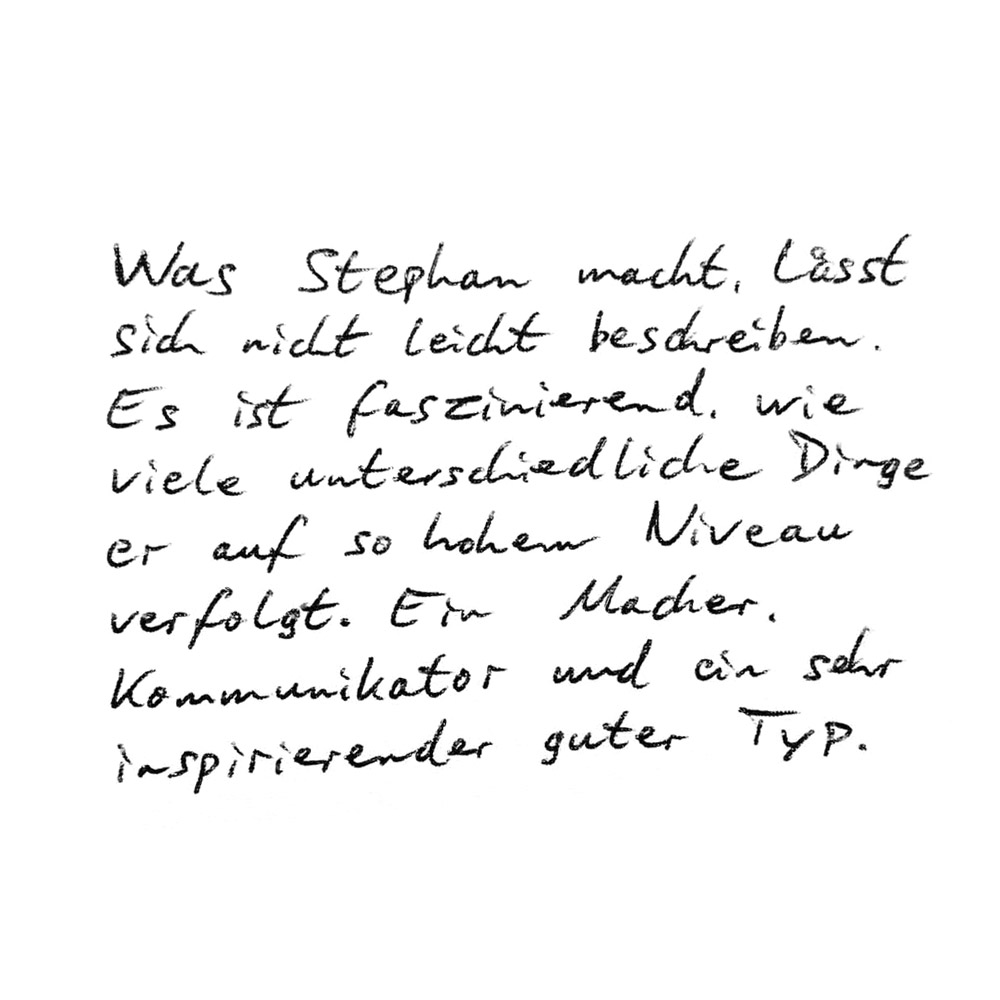 Was Stephan macht, lässt
sich nicht leicht beschreiben.
Es ist faszinierend, wie
viele unterschiedliche Dinge
er auf so hohem Niveau
verfolgt. Ein Macher,
Kommunikator und ein sehr
inspirierender guter Typ.